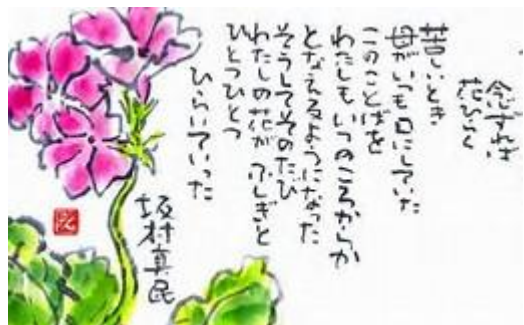 念ずれば
花ひらく
苦しいとき
母がいつも口にしていた
このことばを
わたしもいつのころからか
となえるようになった
そうしてそのたび
わたしの花が ふしぎと
ひとつひとつ
ひらいていった
坂村真民